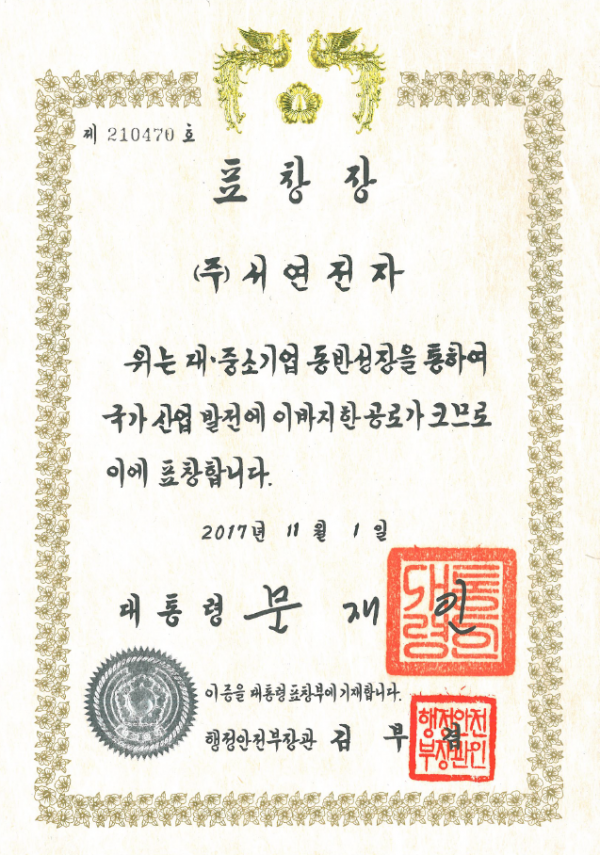 제 210470 호
표창장
(주)서연전자
위는 대·중소기업 동반성장을 통하여
국가 산업 발전에 이바지한 공로가 크므로
이에 표창합니다.
2017년 11월 1일
대통령 문재인
대통령의인
이 증을 대통령 표창부에 기재합니다.
행정안전부장관 김부겸
행정안전
부장관인